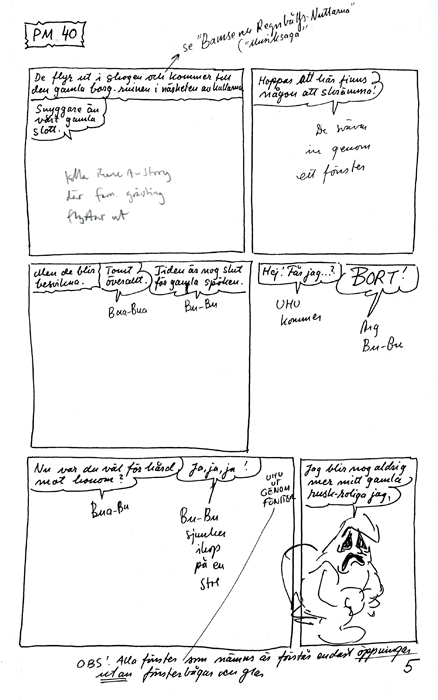 PM 40
se "Bamse och Regnbågs-Nuttarna"
("Musiksaga"
De flyr ut i skogen och kommer till
den gamla borg-ruinen i närheten av kullarna.
Snyggare än
vårt gamla
slott.
kolla Rune A-story
där fam grävling
flyttar ut
Hoppas att här finns
någon att skrämma!
De svävar
in genom
ett fönster
Men de blir
besvikna.
Tomt
överallt.
Bua-Bua
Tiden är nog slut
för gamla spöken.
Bu-Bu
Hej! Får jag...?
UHU
kommer
BORT!
Arg
Bu-Bu
Nu var du väl för hård
mot honom?
Bua-Bu
Ja, ja, ja!
Bu-Bu
sjunker
ihop
på en
stol
UHU
UT
GENOM
FÖNSTER
Jag blir nog aldrig
mer mitt gamla
rysk-roliga jag.
OBS! Alla fönster som nämns är förstås endast öppningar
utan fönsterbågar och glas
5